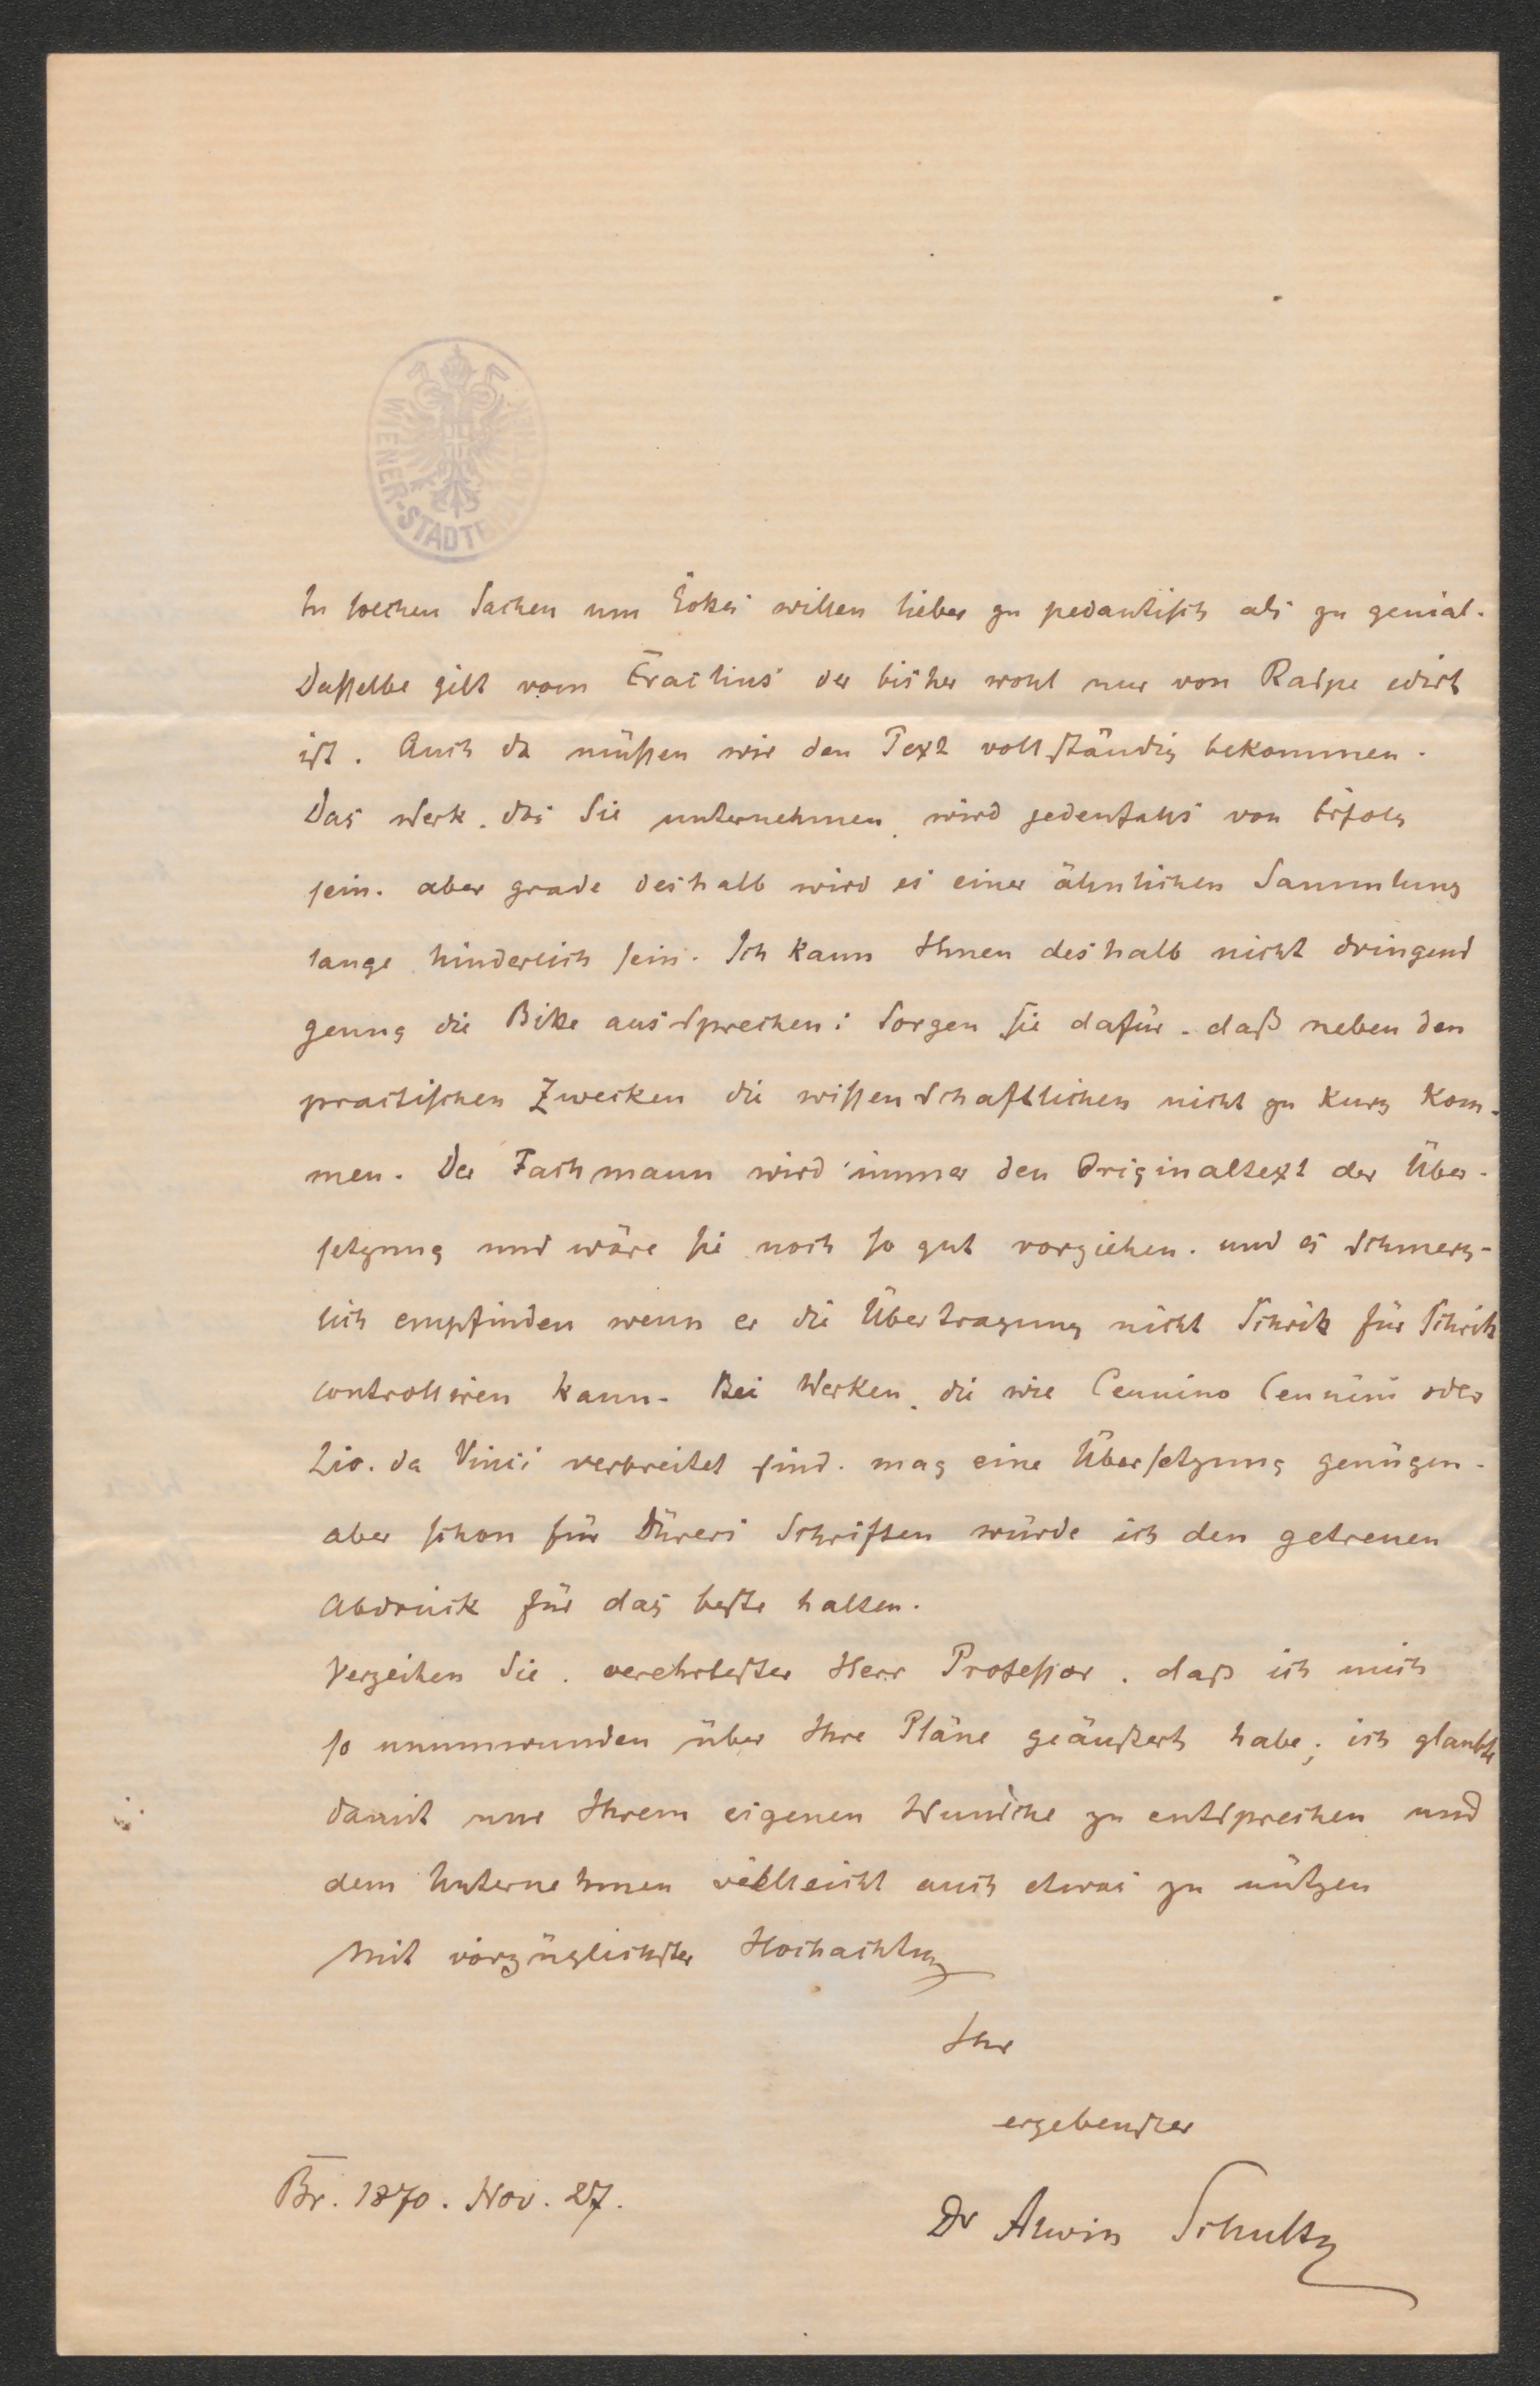 WIENER-STADTBIBLIOTHEK
In solchen Sachen um Gottes willen lieber zu pedantisch als zu genial.
Dasselbe gilt vom Eraclius der bisher wohl nur von Raspe edirt
ist. Auch da müssen wir den Text vollständig bekommen.
Das Werk, das Sie unternehmen, wird jedenfalls von Erfolg
sein, aber grade deshalb wird es einer ähnlichen Sammlung
lange hinderlich sein. Ich kann Ihnen deshalb nicht dringend
genug die Bitte aussprechen: Sorgen Sie dafür, daß neben den
practischen Zwecken die wissenschaftlichen nicht zu kurz kom-
men. Der Fachmann wird immer den Originaltext der Über-
setzung und wäre sie noch so gut vorziehen, und es schmerz-
lich empfinden wenn er die Übertragung nicht Schritt für Schritt
controlliren kann. Bei Werken, die wie Cennino Cennini oder
Lio. da Vinci verbreitet sind, mag eine Übersetzung genügen,
aber schon für Dürers Schriften würde ich den getreuen
Abdruck für das beste halten.
Verzeihen Sie, verehrtester Herr Professor, daß ich mich
so unumwunden über Ihre Pläne geäußert habe; ich glaubte
damit nur Ihrem eigenen Wunsche zu entsprechen und
dem Unternehmen vielleicht auch etwas zu nützen
Mit vorzüglichster Hochachtung
Ihr
ergebenster
Br. 1870. Nov. 27.
Dr Alwin Schultz